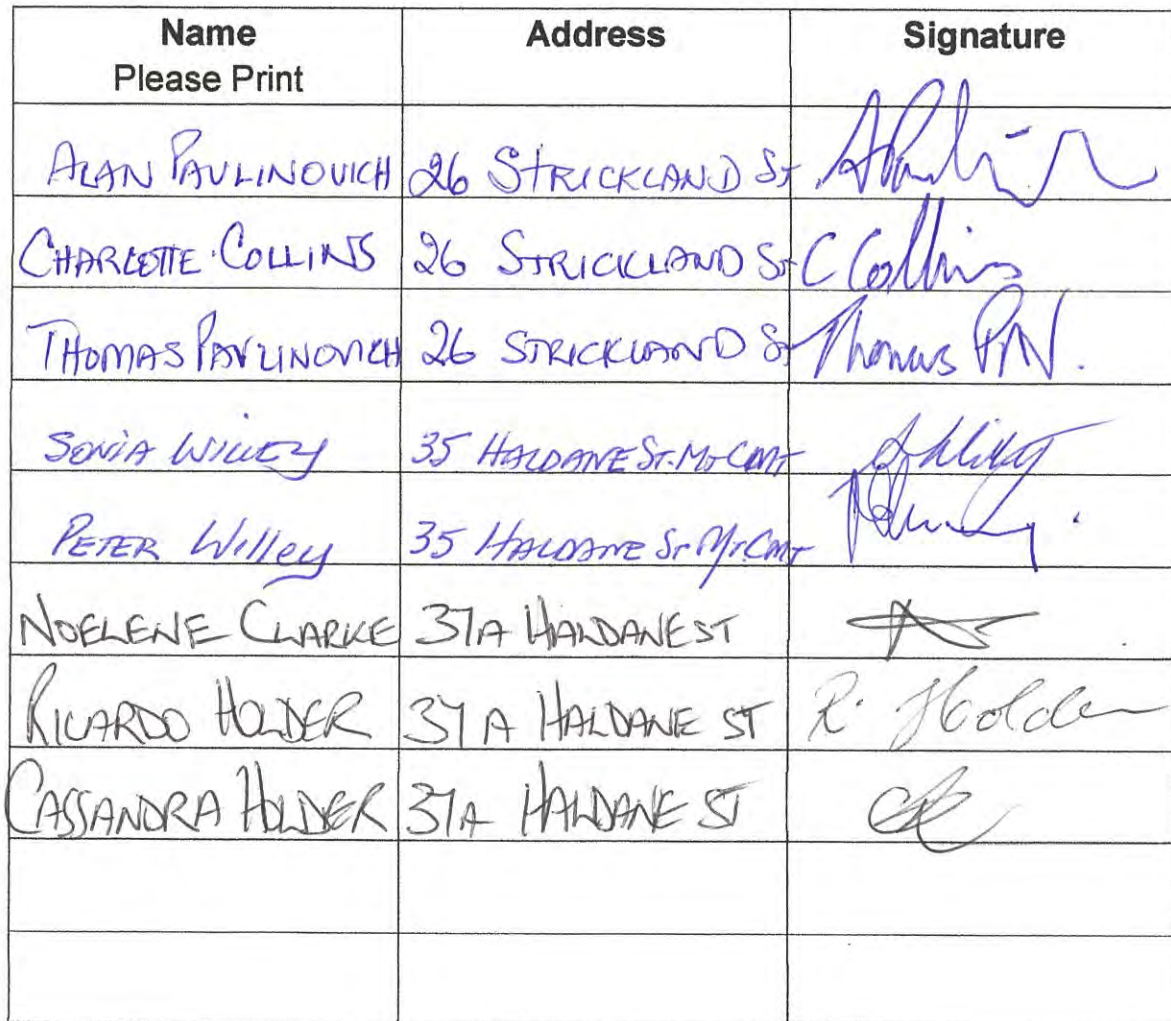 Name Address Signature
Please Print
ALAN PAVLINOVICH 26 STRICKLAND ST
CHARLOTTE COLLINS 26 STRICKLAND ST C Collins
THOMAS PAVLINOVICH 26 STRICKLAND ST Thomas PAV.
SONIA WILLEY 35 HALDANE ST. MT CMT
PETER Willey 35 HALDANE ST MT. CMT
NOELENE CLARKE 37A HALDANE ST
RICARDO HOLDER 37A HALDANE ST R. Holder
CASSANDRA HOLDER 37A HALDANE ST